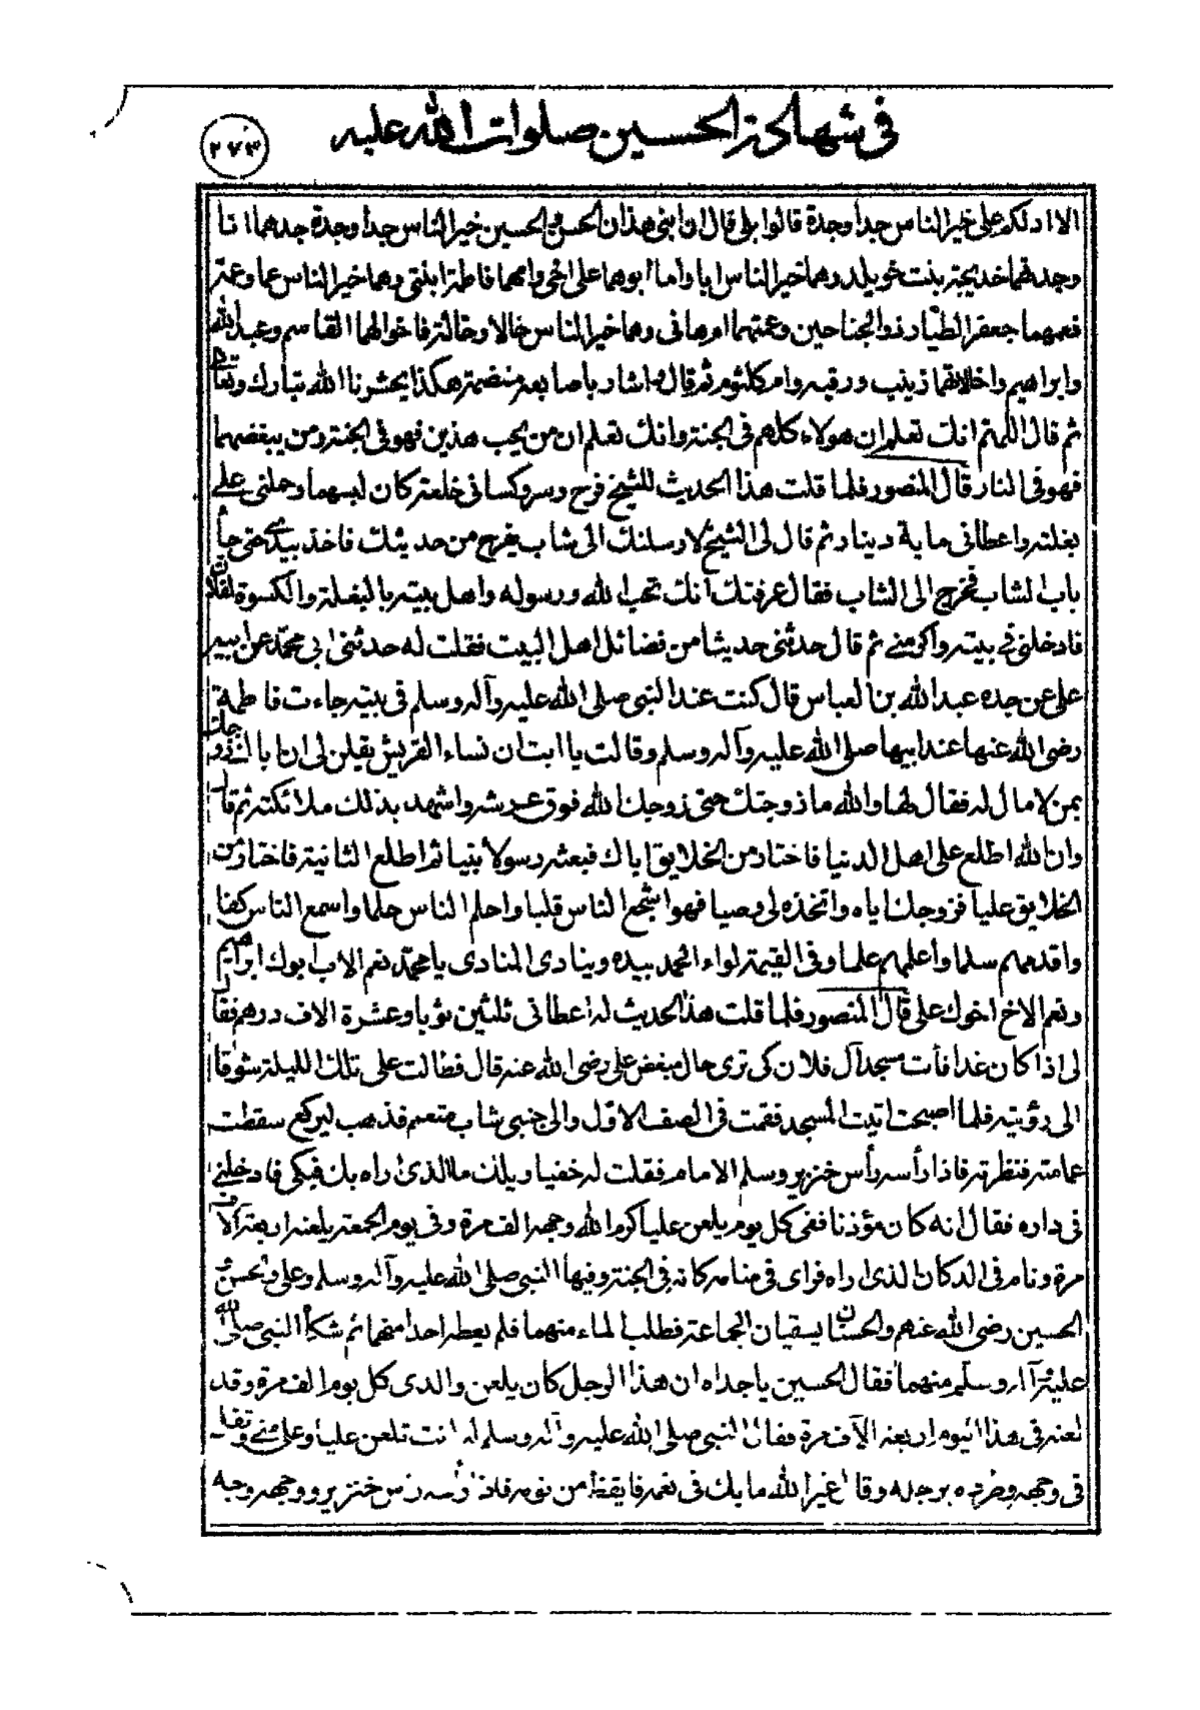 في شهادة الحسين صلوات الله عليه
٢٧٣
الا ادلكم على خير الناس جدا وجدة قالوا بلى قال ان ابنى هذان الحسن والحسين خير الناس جدا وجدة جدهما انا
وجدتهما خديجة بنت خويلد وهما خير الناس ابا واما ابوهما على اخى وامهما فاطمة ابنتى وهما خير الناس عما وعمة
فعمهما جعفر الطيار ذو الجناحين وعمتهما ام هانى وهما خير الناس خالا وخالة فاخوالهما القاسم وعبدالله
وابراهيم واخالاتهما زينب ورقيه وام كلثوم ثم قال واشار باصابعه منضمة هكذا يحشرنا الله تبارك وتعالى
ثم قال اللهم انك تعلم ان هولاء كلهم فى الجنة وانك تعلم ان من يحب هذين فهو فى الجنة ومن يبغضهما
فهو فى النار قال المنصور فلما قلت هذا الحديث للشيخ فرح وسر وكسانى خلعة كان لبسهما وحملنى على
بغلته واعطانى ماية دينار ثم قال لى الشيخ لارسلنك الى شاب يفرح من حديثك فاخذ بيدى حتى جاء
باب الشاب فخرج الى الشاب فقال عرفتك انك تحب الله ورسوله واهل بيته بالبغلة والكسوة لفلان
فادخلنى فى بيته واكرمنى ثم قال حدثنى حديثا من فضائل اهل البيت فقلت له حدثنى ابى محمد عن ابيه
على عن جده عبد الله بن العباس قال كنت عند النبى صلى الله عليه وآله وسلم فى بيته جاءت فاطمة
رضى الله عنها عند ابيها صلى الله عليه وآله وسلم وقالت يا ابت ان نساء القريش يقلن لى ان اباك زوجك
بمن لا مال له فقال لها والله ما زوجتك حتى زوجك الله فوق عرشه واشهد بذلك ملائكته ثم قال
وان الله اطلع على اهل الدنيا فاختار من الخلايق اباك فبعثه رسولا نبيا ثم اطلع الثانية فاختار من
الخلايق عليا فزوجك اياه واتخذه لى وصيا فهو اشجع الناس قلبا واحلم الناس حلما واسمع الناس كفا
واقدمهم سلما واعلمهم علما وفى القيمة لواء الحمد بيده وينادى المنادى يا محمد نعم الاب ابوك ابراهيم
ونعم الاخ اخوك على قال المنصور فلما قلت هذا الحديث له اعطانى ثلثين ثوبا وعشرة الاف درهم فقال
لى اذا كان غدا فأت مسجد آل فلان كى ترى حال مبغض على رضى الله عنه قال فطالت على تلك الليلة شوقا
الى رؤيته فلما اصبحت اتيت المسجد فقمت فى الصف الاول والى جنبى شاب متعمم فذهب ليركع سقطت
عمامته فنظرته فاذا رأسه رأس خنزير وسلم الامام فقلت له خفيا ويلك ما الذى اراه بك فبكى فادخلنى
فى داره فقال انه كان مؤذنا ففى كل يوم يلعن عليا كرم الله وجهه الف مرة وفى يوم الجمعة يلعنه اربعة آلاف
مرة ونام فى الدكان الذى اراه فراى فى منامه كانه فى الجنة وفيها النبى صلى الله عليه وآله وسلم وعلى والحسن و
الحسين رضى الله عنهم والحسنان يسقيان الجماعة فطلب الماء منهما فلم يعطه احدا منهما ثم شكا النبى صلى الله
عليه وآله وسلم منهما فقال الحسين يا جداه ان هذا الرجل كان يلعن والدى كل يوم الف مرة وقد
لعنه فى هذا اليوم اربعة الآف مرة فقال النبى صلى الله عليه وآله وسلم له انت تلعن عليا وعلى منى وتفل
فى وجهه وضربه برجله وقال غير الله ما بك فى نعمة فايقظ من نومه فاذا رأسه رأس خنزير ووجهه وجه